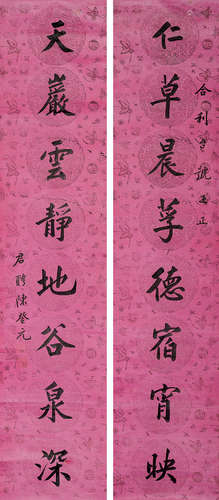 仁草晨莩德宿宵映
合利寶號 玉正
天巖雲靜地谷泉深
君聘陳登元